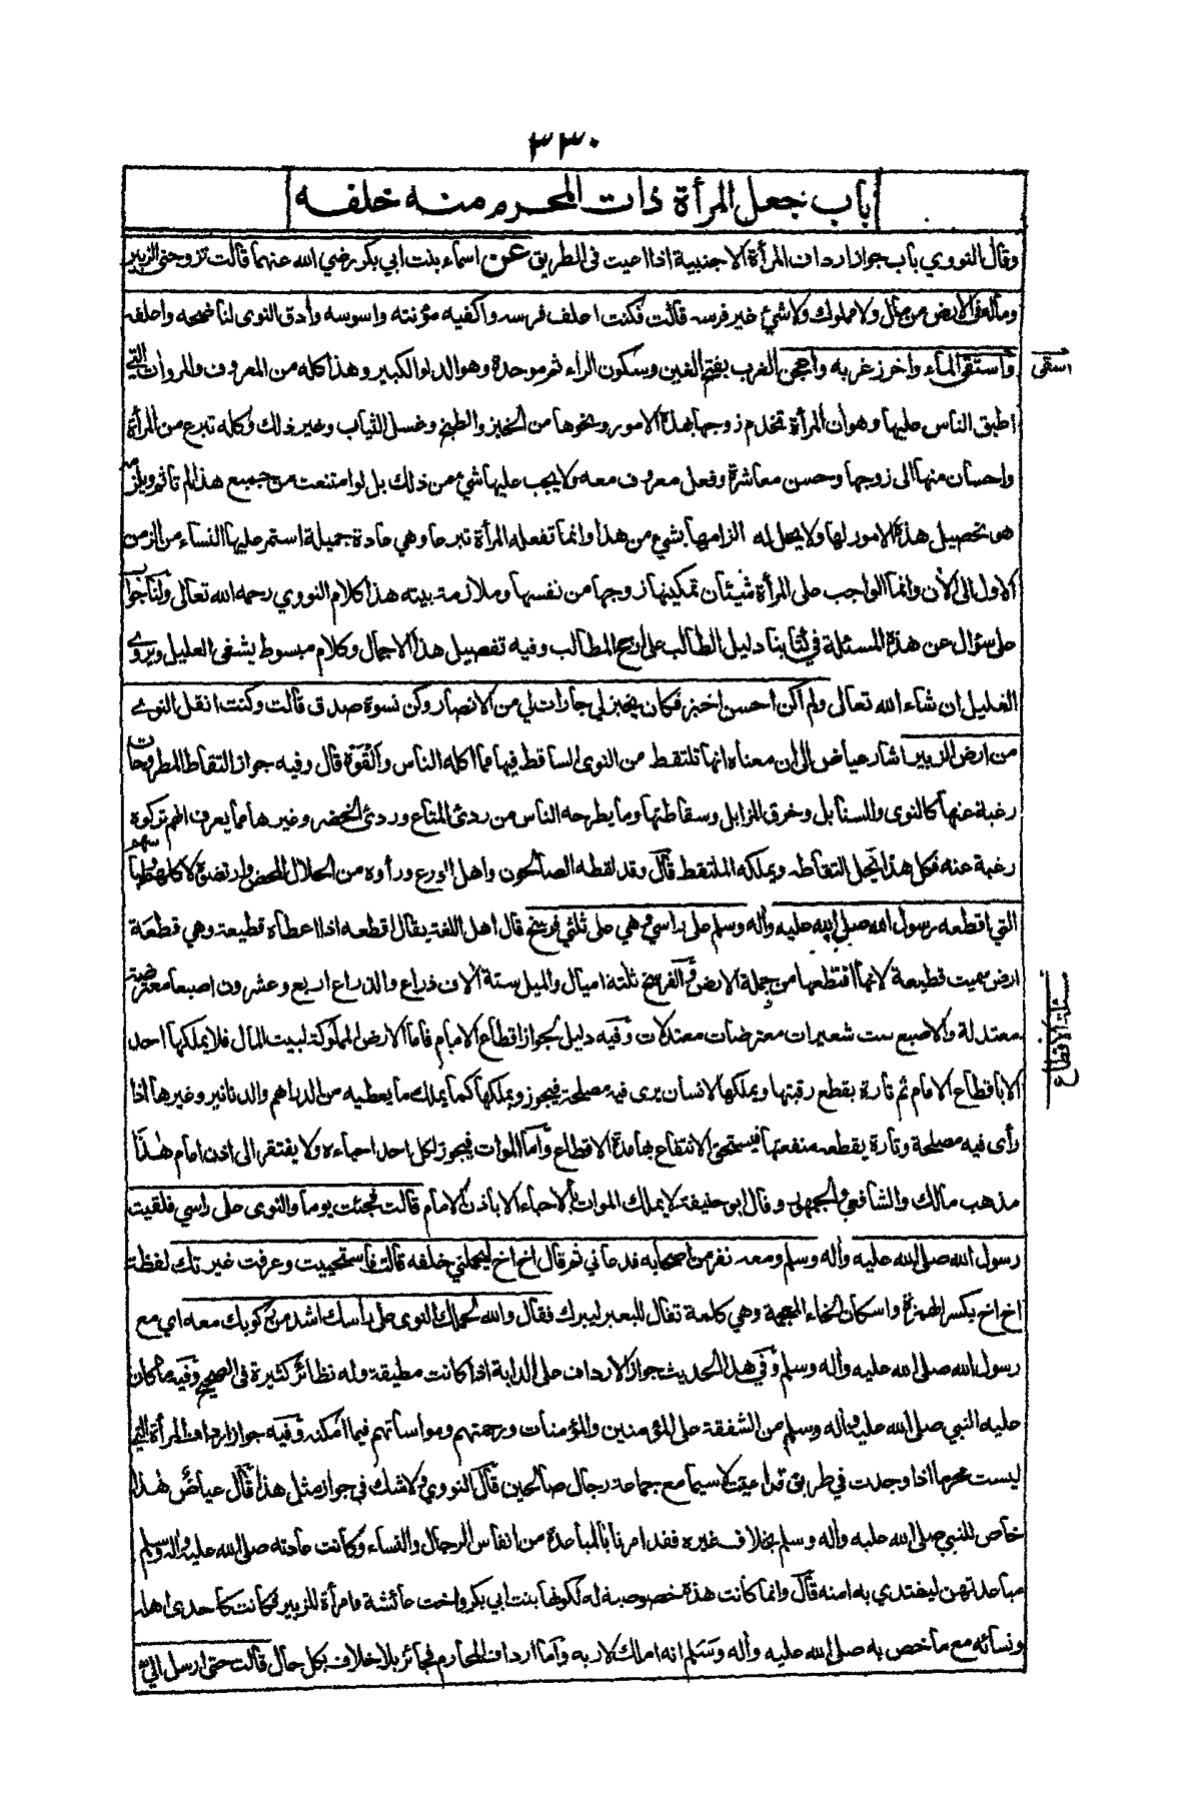 ٣٣٠
باب جعل المرأة ذات المحرم منه خلفه
وقال النووي باب جواز ارداف المرأة الاجنبية اذا اعيت فى الطريق عن اسماء بنت ابي بكر رضي الله عنهما قالت تزوجنى الزبير
وماله فى الارض من مال ولا مملوك ولا شيئ غير فرسه قالت فكنت اعلف فرسه واكفيه مؤنته واسوسه وأدق النوى لناضحه واعلفه
واستقى الماء واخرز غربه واعجن الغرب بفتح الغين وسكون الراء ثم موحدة وهو الدلو الكبير وهذا كله من المعروف والمروات التي
استقى
اطبق الناس عليها وهو ان المرأة تخدم زوجها بهذه الامور ونحوها من الخبز والطبخ وغسل الثياب وغير ذلك وكله تبرع من المرأة
واحسان منها الى زوجها وحسن معاشرة وفعل معروف معه ولا يجب عليها شيء من ذلك بل لو امتنعت من جميع هذا لم تأثم ويلزمه
هو تحصيل هذه الامور لها ولا يحل له الزامها بشيء من هذا وانما تفعله المرأة تبرعا وهي عادة جميلة استمر عليها النساء من الزمن
الاول الى الأن وانما الواجب على المرأة شيئان تمكينها زوجها من نفسها وملازمة بيته هذا كلام النووي رحمه الله تعالى ولنا جواب
على سؤال عن هذه المسئلة في كتابنا دليل الطالب على ارجح المطالب وفيه تفصيل هذا الاجمال وكلام مبسوط يشفى العليل ويروي
الغليل ان شاء الله تعالى ولم أكن احسن اخبز فكان يخبز لي جارات لي من الانصار وكن نسوة صدق قالت وكنت انقل النوى
من ارض الزبير اشار عياض الى ان معناه انها تلتقط من النوى الساقط فيها مما اكله الناس والقوة قال وفيه جواز التقاط المطروحات
رغبة عنها كالنوى والسنابل وخرق المزابل وسقاطتها وما يطرحه الناس من ردئ المتاع وردئ الخضر وغيرها مما يعرف انهم تركوه
رغبة عنه فكل هذا يحل التقاطه ويملكه الملتقط قال وقد لقطه الصالحون واهل الورع ورأوه من الحلال المحض وارتضوه لاكلهم ولباسهم
التي اقطعه رسول الله صلى الله عليه وأله وسلم على راسي وهي على ثلثي فرسخ قال اهل اللغة يقال اقطعه اذا اعطاه قطيعة وهي قطعة
ارض سميت قطيعة لانها اقتطعها من جملة الارض والفرسخ ثلثة اميال والميل ستة الاف ذراع والذراع اربع وعشرون اصبعا معترضة
مسئلة الاقطاع
معتدلة والاصبع ست شعيرات معترضات معتدلات وفيه دليل لجواز اقطاع الامام فاما الارض المملوكة لبيت المال فلا يملكها احد
الا باقطاع الامام ثم تارة بقطع رقبتها ويملكها الانسان يرى فيه مصلحة فيجوز ويملكها كما يملك ما يعطيه من الدراهم والدنانير وغيرها اذا
رأى فيه مصلحة وتارة يقطعه منفعتها فيستحق الانتفاع بها مدة الاقطاع وأما الموات فيجوز لكل احد احياءه ولا يفتقر الى اذن امام هذا
مذهب مالك والشافعي والجمهور وقال ابو حنيفة لا يملك الموات بالاحياء الا باذن الامام قالت فجئت يوما والنوى على راسي فلقيت
رسول الله صلى الله عليه وأله وسلم ومعه نفر من اصحابه فدعاني ثم قال اخ اخ ليحملني خلفه قالت فاستحييت وعرفت غيرتك لفظة
اخ اخ بكسر الهمزة واسكان الخاء المعجمة وهي كلمة تقال للبعير ليبرك فقال والله لحملك النوى على رأسك اشد من ركوبك معه اي مع
رسول الله صلى الله عليه وأله وسلم وفي هذا الحديث جواز الارداف على الدابة اذا كانت مطيقة وله نظائر كثيرة فى الصحيح وفيه ما كان
عليه النبي صلى الله عليه وأله وسلم من الشفقة على المؤمنين والمؤمنات ورحمتهم ومواساتهم فيما امكنه وفيه جواز ارداف المرأة التي
ليست محرما اذا وجدت في طريق قد اعيت لا سيما مع جماعة رجال صالحين قال النووي ولا شك في جواز مثل هذا قال عياض هذا
خاص للنبي صلى الله عليه وأله وسلم بخلاف غيره فقد امرنا بالمباعدة من انفاس الرجال والنساء وكانت عادته صلى الله عليه وأله وسلم
مباعدتهن ليقتدي به امته قال وانما كانت هذه خصوصية له لكونها بنت ابي بكر واخت عائشة وامرأة للزبير فكانت كاحدى اهله
ونسائه مع ما خص به صلى الله عليه وأله وسلم انه املك لاربه وأما ارداف المحارم فجائز بلا خلاف بكل حال قالت حتى ارسل الي